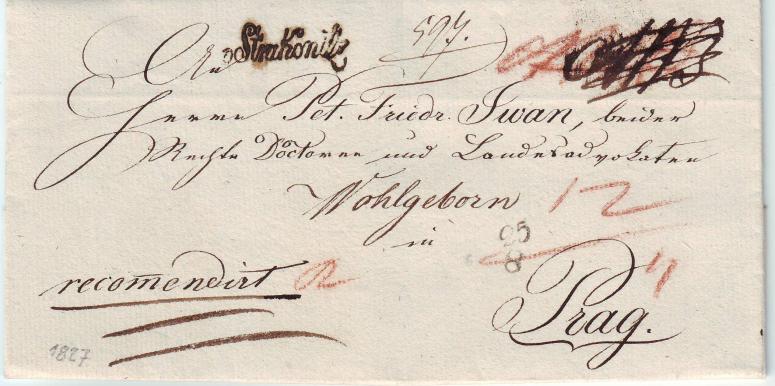 v Strakonitz
597.
An
Herrn Pet. Friedr. Iwan, beider
Rechte Doctoren und Landesadvokaten
Wohlgeborn
12
in
25
8
recom̄endirt R
Prag.
1827